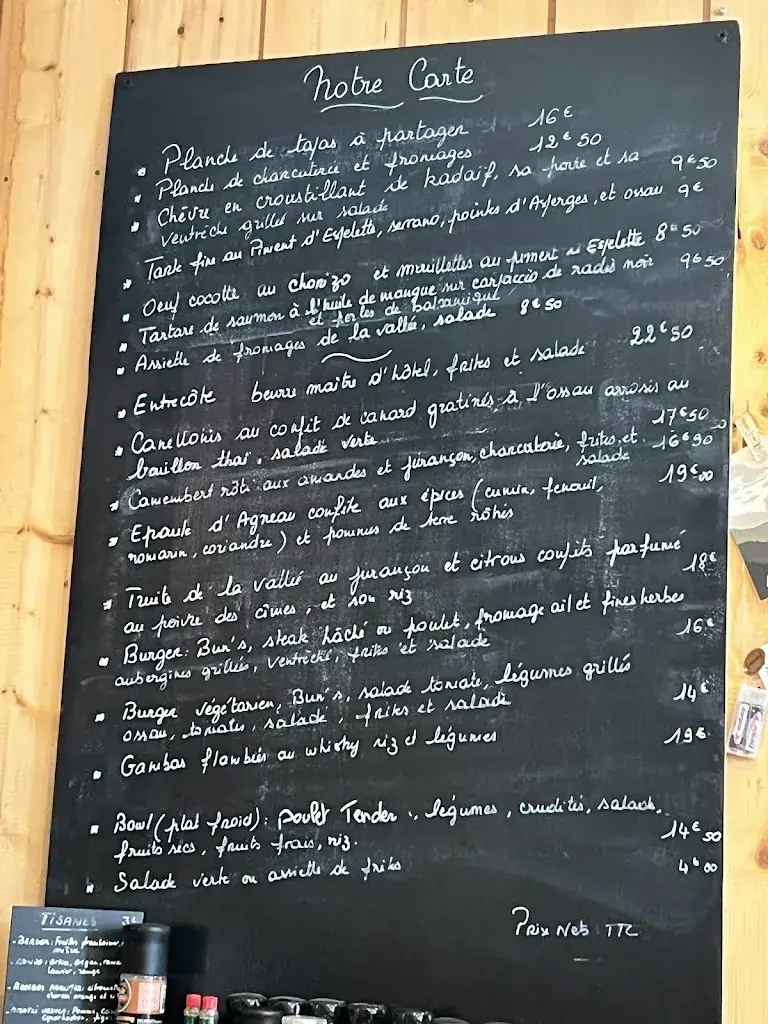 Notre Carte
Planche de tapas à partager 16€
Planche de charcuterie et fromages 12€50
Chèvre en croustillant de kadaïf, sa poire et sa
ventrèche grillée sur salade 9€50
Tarte fine au Piment d'Espelette, serrano, pointes d'Asperges, et ossau 9€
Oeuf cocotte au chorizo et mouillettes au piment d'Espelette 8€50
Tartare de saumon à l'huile de mangue sur carpaccio de radis noir 9€50
et perles de balsamique
Assiette de fromages de la vallée, salade 8€50
Entrecôte beurre maître d'hôtel, frites et salade 22€50
Canellonis au confit de canard gratinés à l'ossau arrosés au
bouillon thaï, salade verte 17€50
Camembert rôti aux amandes et jurançon, charcuterie, frites et 16€90
salade
Epaule d'Agneau confite aux épices (cumin, fenouil, 19€00
romarin, coriandre) et pommes de terre rôties
Truite de la vallée au jurançon et citrons confits parfumé
au poivre des cîmes, et son riz 18€
Burger: Bun's, steak hâché ou poulet, fromage ail et fines herbes
aubergines grillées, ventrèche, frites et salade 16€
Burger végétarien, Bun's, salade tomate, légumes grillés
ossau, tomates, salade, frites et salade 14€
Gambas flambées au whisky riz et légumes 19€
Bowl (plat froid): poulet Tender, légumes, crudités, salade,
fruits secs, fruits frais, riz. 14€50
Salade verte ou assiette de frites 4€00
Prix Nets TTC
TISANES 3€